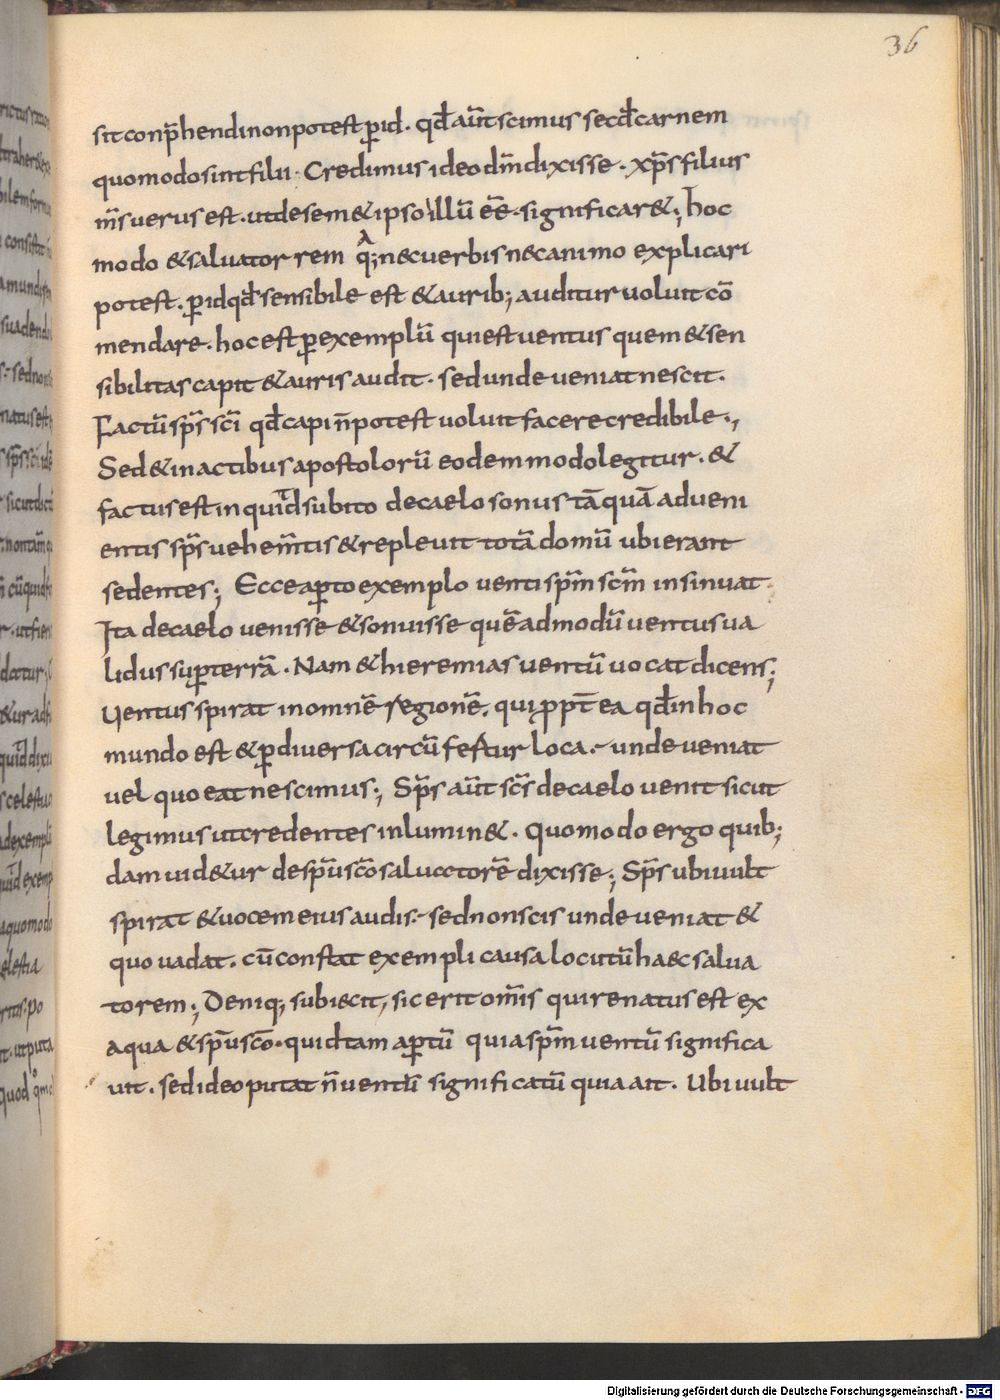 36
sit conp̄hendi non potest ꝑ id. qđ aūt scimus secđ carnem
quomodo sint filii. Credimus ideo dn̄m dixisse. xp̄s filius
m̄s uerus est. ut de sem& ipso illū ēe significar&; hoc
modo & saluator rem q;nec uerbis nec animo explicari
potest. ꝑ id qđ sensibile est & aurib; auditur uoluit cō
mendare. hoc est ꝑ exemplū qui est uentus quem & sen
sibilitas capit & auris audit. sed unde ueniat nescit.
Factū sp̄s sc̄i qđ capi n̄ potest uoluit facere credibile.,
Sed & in actibus apostolorū eodem modo legitur. &
factus est inquid subito de caelo sonus tāquā adueni
entis sp̄s uehem̄tis & repleuit totā domū ubi erant
sedentes; Ecce aꝑto exemplo uenti sp̄m sc̄m insinuat.
Ita de caelo uenisse & sonuisse quēadmodū uentus ua
lidus suꝑ terrā. Nam & hieremias uentū uocat dicens;
Uentus spirat in omnē regionē. qui ꝓpt̄ ea qđ in hoc
mundo est & ꝑ diuersa circū fertur loca. unde ueniat
uel quo eat nescimus; Sp̄s aūt sc̄s de caelo uenit sicut
legimus ut credentes inlumin&. Quomodo ergo quib;
dam uid&ur de sp̄u sc̄o saluatorē dixisse; Sp̄s ubi uult
spirat & uocem eius audis. sed non scis unde ueniat &
quo uadat. cū constat exempli causa locutū haec salua
torem; Deniq; subiecit, sic erit om̄is qui renatus est ex
aqua & sp̄u sc̄o. quid tam aꝑtū quia sp̄m uentū significa
uit. sed ideo putat n̄ uentū significatū quia ait. Ubi uult
Digitalisierung gefördert durch die Deutsche Forschungsgemeinschaft - DFG